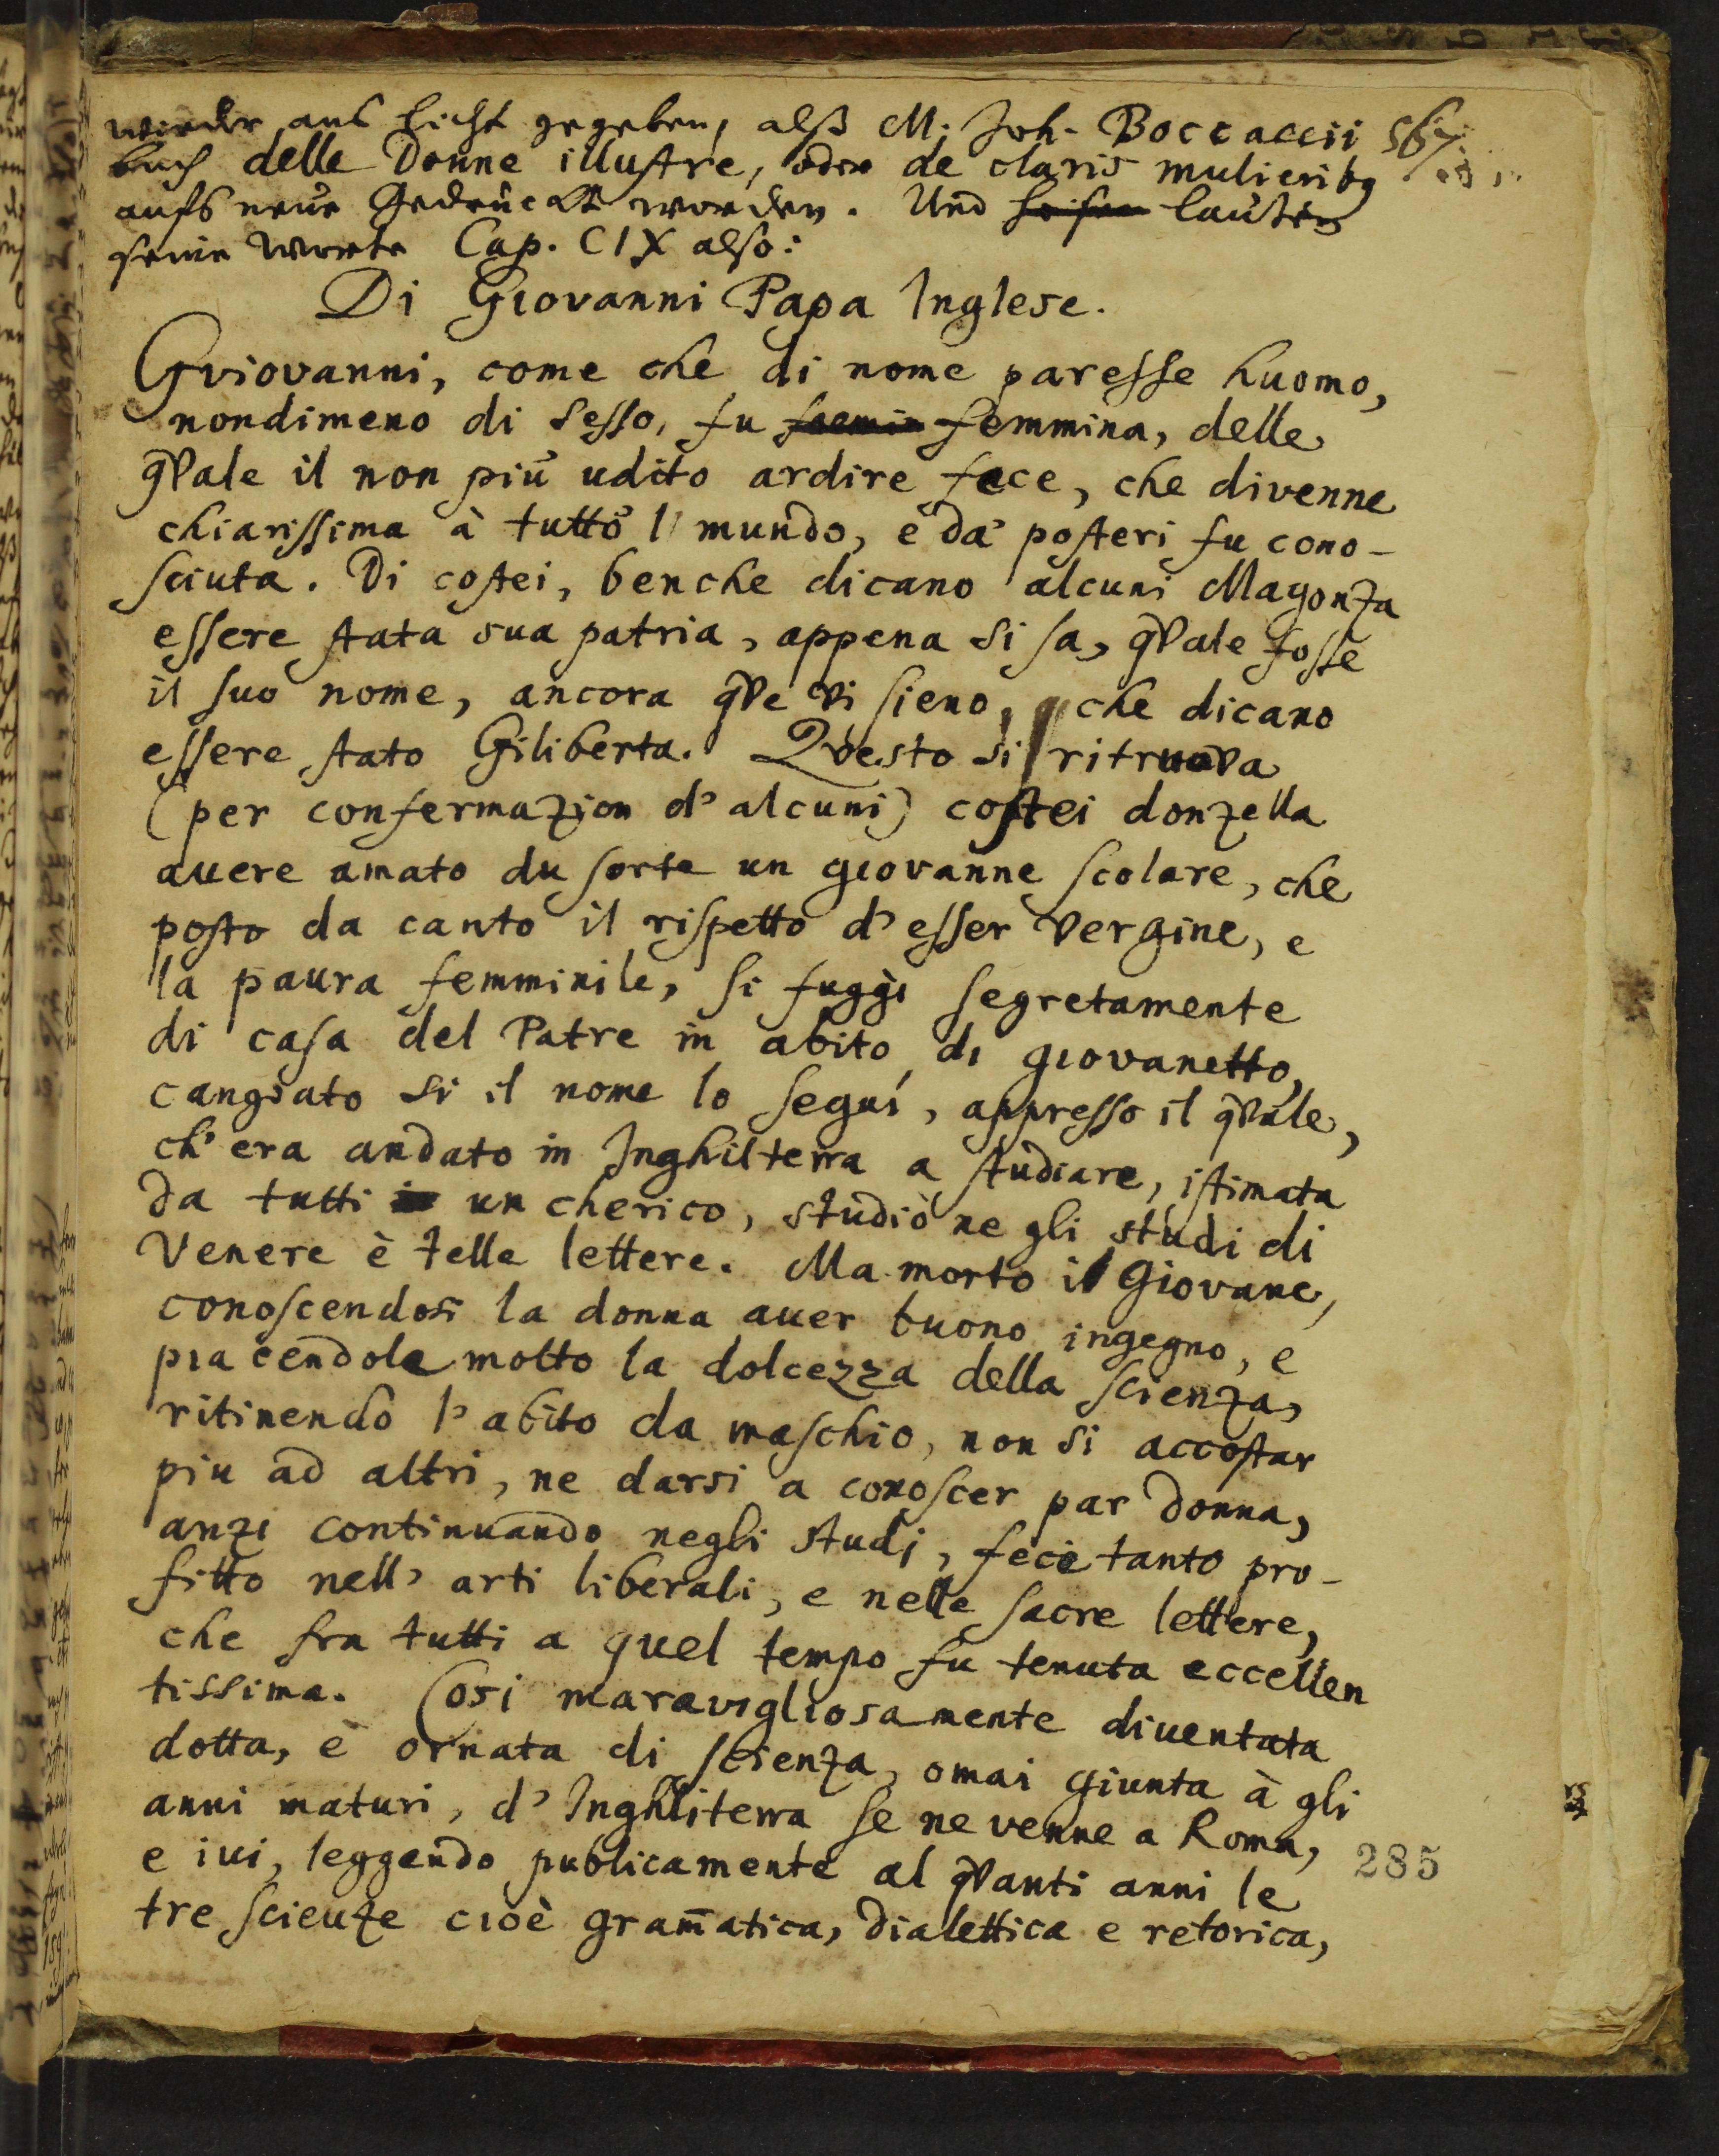 wieder ans Licht gegeben, alß M. Joh. Boccaccii 567.
buch delle Donne illustre, oder de claris mulieribg
aufs neue Gedruckt worden. Und heisen lauten
seine Worte Cap. CIX also:
Di Giovanni Papa Inglese.
Gviovanni, come che di nome paresse huomo,
nondimeno di sesso, fu foemin femmina, delle
qVale il non più udito ardire fece, che divenne
chiarissima à tutto l mundo, e da posteri fu cono-
sciuta. Di costei, benche dicano alcuni Magonza
essere stata sua patria, appena si sa, qVale fosse
il suo nome, ancora qVe vi sieno, che dicano
essere stato Giliberta. QVesto si ritruova
(per confermazion d' alcuni) costei donzella
avere amato du sorte un giovanne scolare, che
posto da canto il rispetto d' esser Vergine, e
la paura femminile, si fuggì segretamente
di casa del Patre in abito di giovanetto,
cangiato si il nome lo seguí, appresso il qVale,
ch' era andato in Inghilterra a studiare, istimata
da tutti in un cherico, studiò ne gli studi di
Venere è telle lettere. Ma morto il Giovane,
conoscendosi la donna aver buono ingegno, e
piacendole molto la dolcezza della scienza,
ritinendo l' abito da maschio, non si accostar
piu ad altri, ne darsi a conoscer par donna,
anzi continuando negli studj, fece tanto pro-
fitto nell' arti liberali, e nelle sacre lettere,
che fra tutti a quel tempo fu tenuta eccellen
tissima. Cosi maravigliosamente diventata
dotta, è ornata di scienza, omai giunta à gli
anni maturi, d' Inghliterra se ne venne a Roma,
e ivi, leggendo publicamente al qVanti anni le
285
tre scienze cioè gram̃atica, dialettica e retorica,